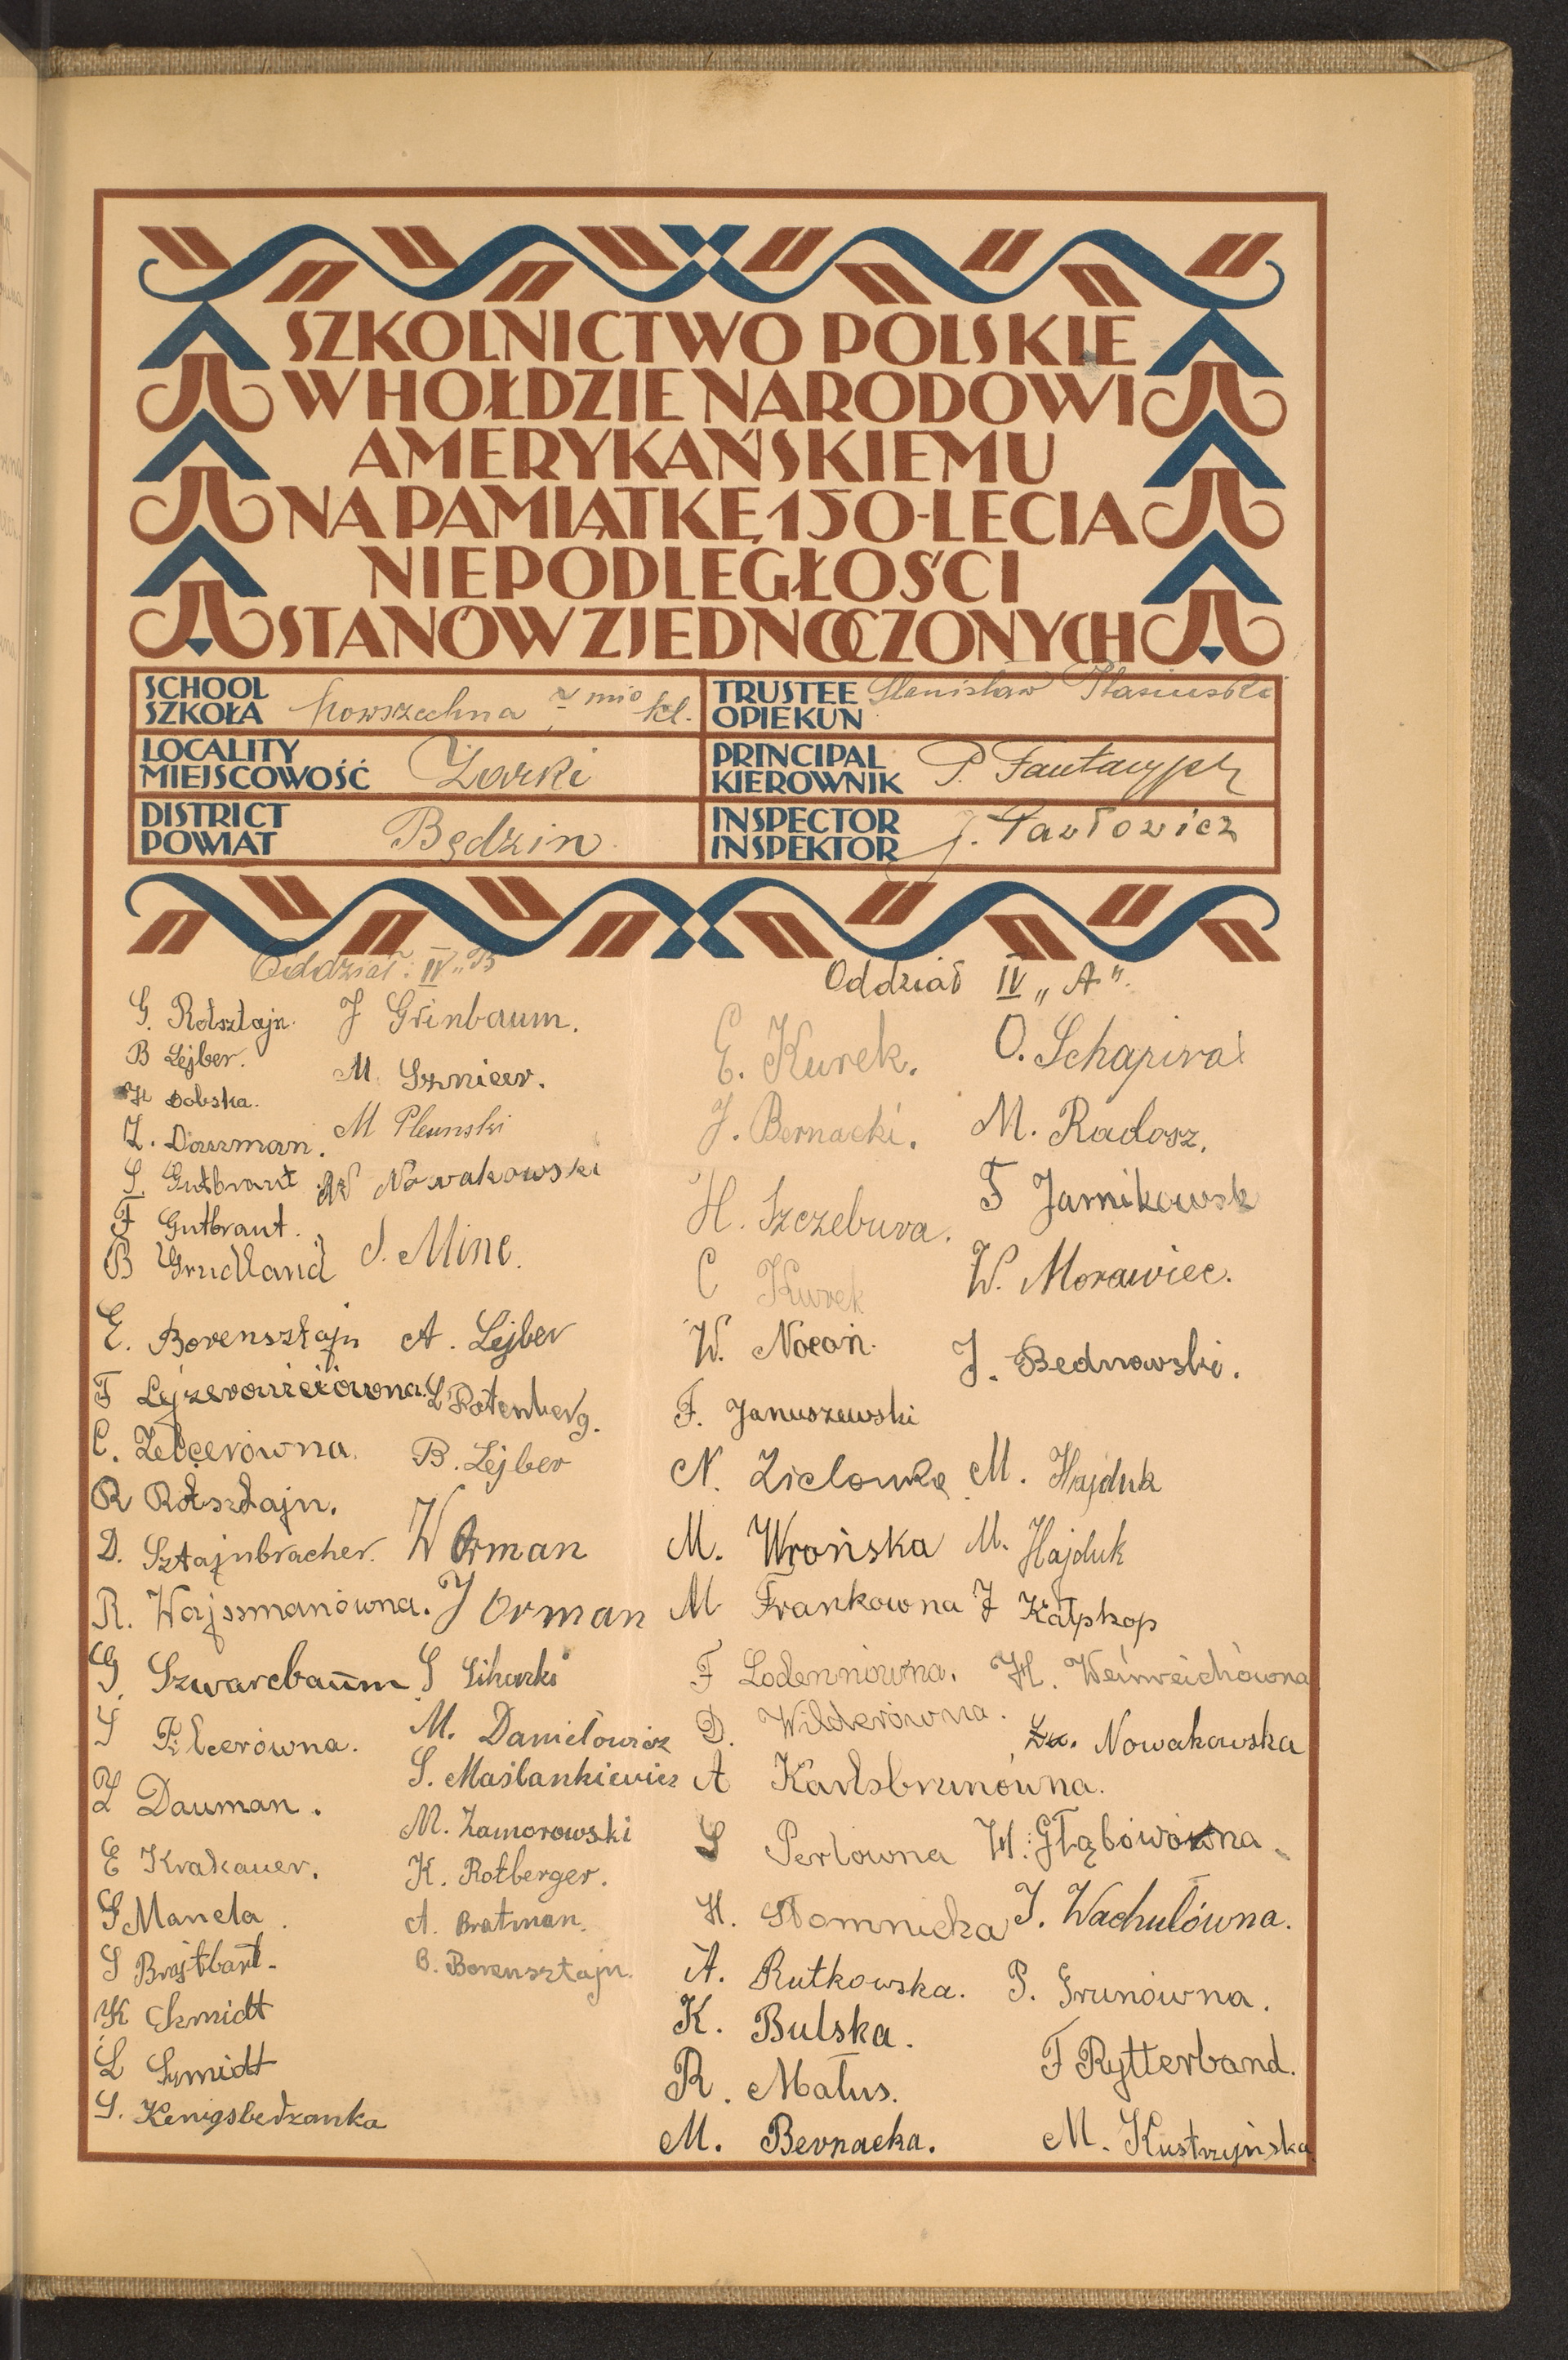 SZKOLNICTWO POLSKIE
W HOŁDZIE NARODOWI
AMERYKAŃSKIEMU
NA PAMIĄTKĘ 150-LECIA
NIEPODLEGŁOŚCI
STANÓW ZJEDNOCZONYCH
SCHOOL
SZKOŁA
Powszechna 7 mio kl.
TRUSTEE
OPIEKUN
Stanisław
LOCALITY
MIEJSCOWOŚĆ
Żarki
PRINCIPAL
KIEROWNIK
P.
DISTRICT
POWIAT
Będzin
INSPECTOR
INSPEKTOR
J. Pawłowicz
Oddział: IV „B
G. Rotsztajn.
B Lejber.
H Dobska.
Z. Dauman.
S. Gutbrant
F Gutbrant.
B Grudland
E. Borensztajn
F Lejzerowiczówna.
C. Zelcerówna.
R Rotsztajn.
D. Sztajnbracher.
R. Wajsmanówna.
G. Szwarcbaum
Z Dauman.
E Krakauer.
S Manela.
S Brajtbart.
K Szmidt
L Szmidt
S. Kenigsbedzanka
J Grinbaum.
M. Sznicer.
M
W Nowakowski
S. Minc.
A. Lejber
L Rotenberg.
B. Lejber
W Orman
J Orman
S
M. Danielowicz
S. Maślankiewicz
M. Zamorowski
K. Rotberger.
A. Bratman.
B. Borensztajn.
Oddział IV „A".
E. Kurek.
J. Bernacki.
H. Szczebura.
C Kurek
W. Nocoń.
F. Januszewski
N. Zielonka
M. Wrońska
M Frankowna
F Lodennówna.
D. Wilderówna.
A Karlsbrunówna.
S Perlowna
H. Słomnicka
A. Rutkowska.
K. Bulska.
R. Matus.
M. Bernacka.
O. Schapira
M. Radosz.
F Jarnikowsk
W. Morawiec.
J. Bednowski.
M. Hajduk
M. Hajduk
J Kalpkop
H. Weinreichówna
Zu. Nowakowska
W. Głąbówówna.
J. Wachulówna.
P. Grunówna.
F Rytterband.
M. Kustrzyńska